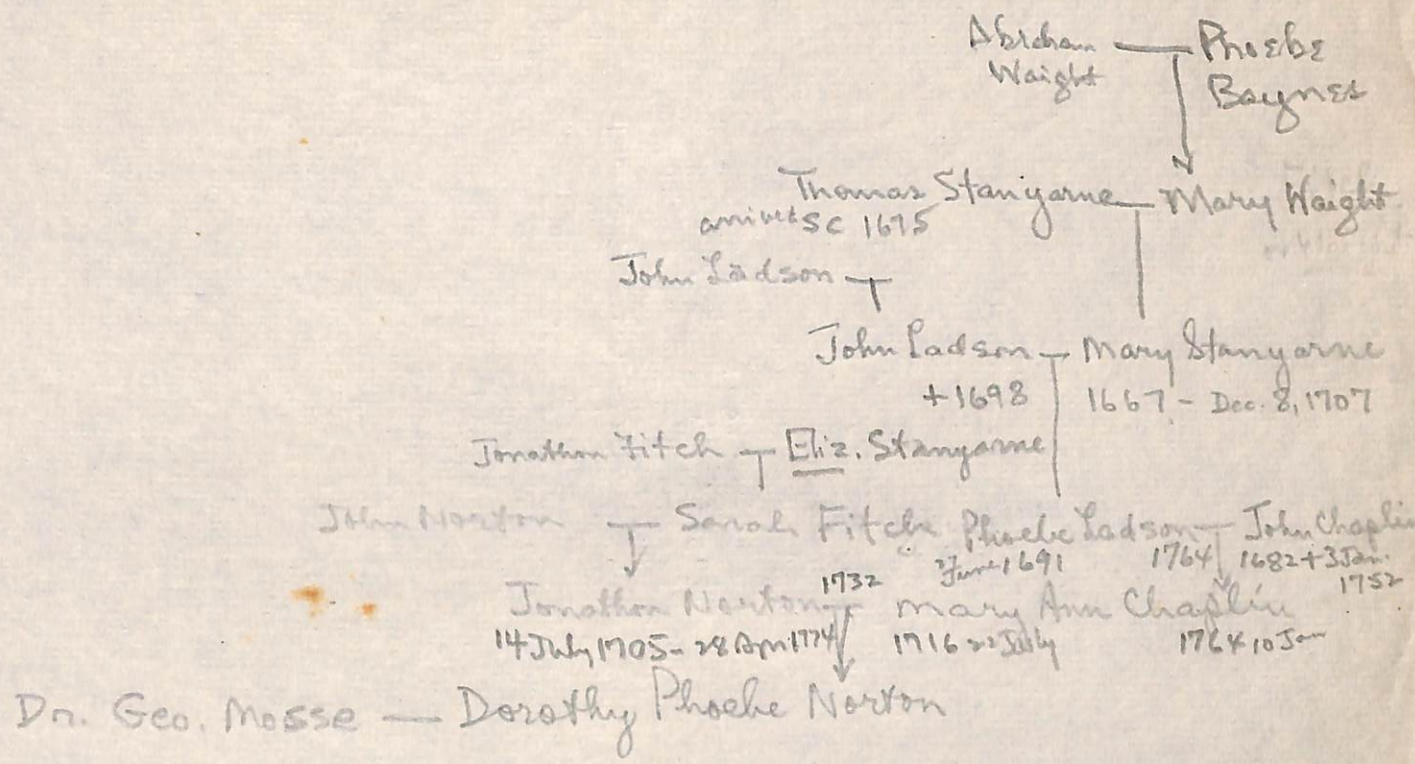 Abraham — Phoebe
Waight Baynes
Thomas Stanyarne — Mary Waight
arrived SC 1675
John Ladson
John Ladson — Mary Stanyarne
+1698 1667 - Dec. 8, 1707
Jonathan Fitch — Eliz. Stanyarne
John Norton — Sarah Fitch Phoebe Ladson — John Chaplin
June 1691 1764 1682 + 3 Jan.
1752
1732
Jonathan Norton — Mary Ann Chaplin
14 July 1705 - 28 Apr 1774 1716 22 July 1764 10 Jan
Dr. Geo. Mosse — Dorothy Phoebe Norton